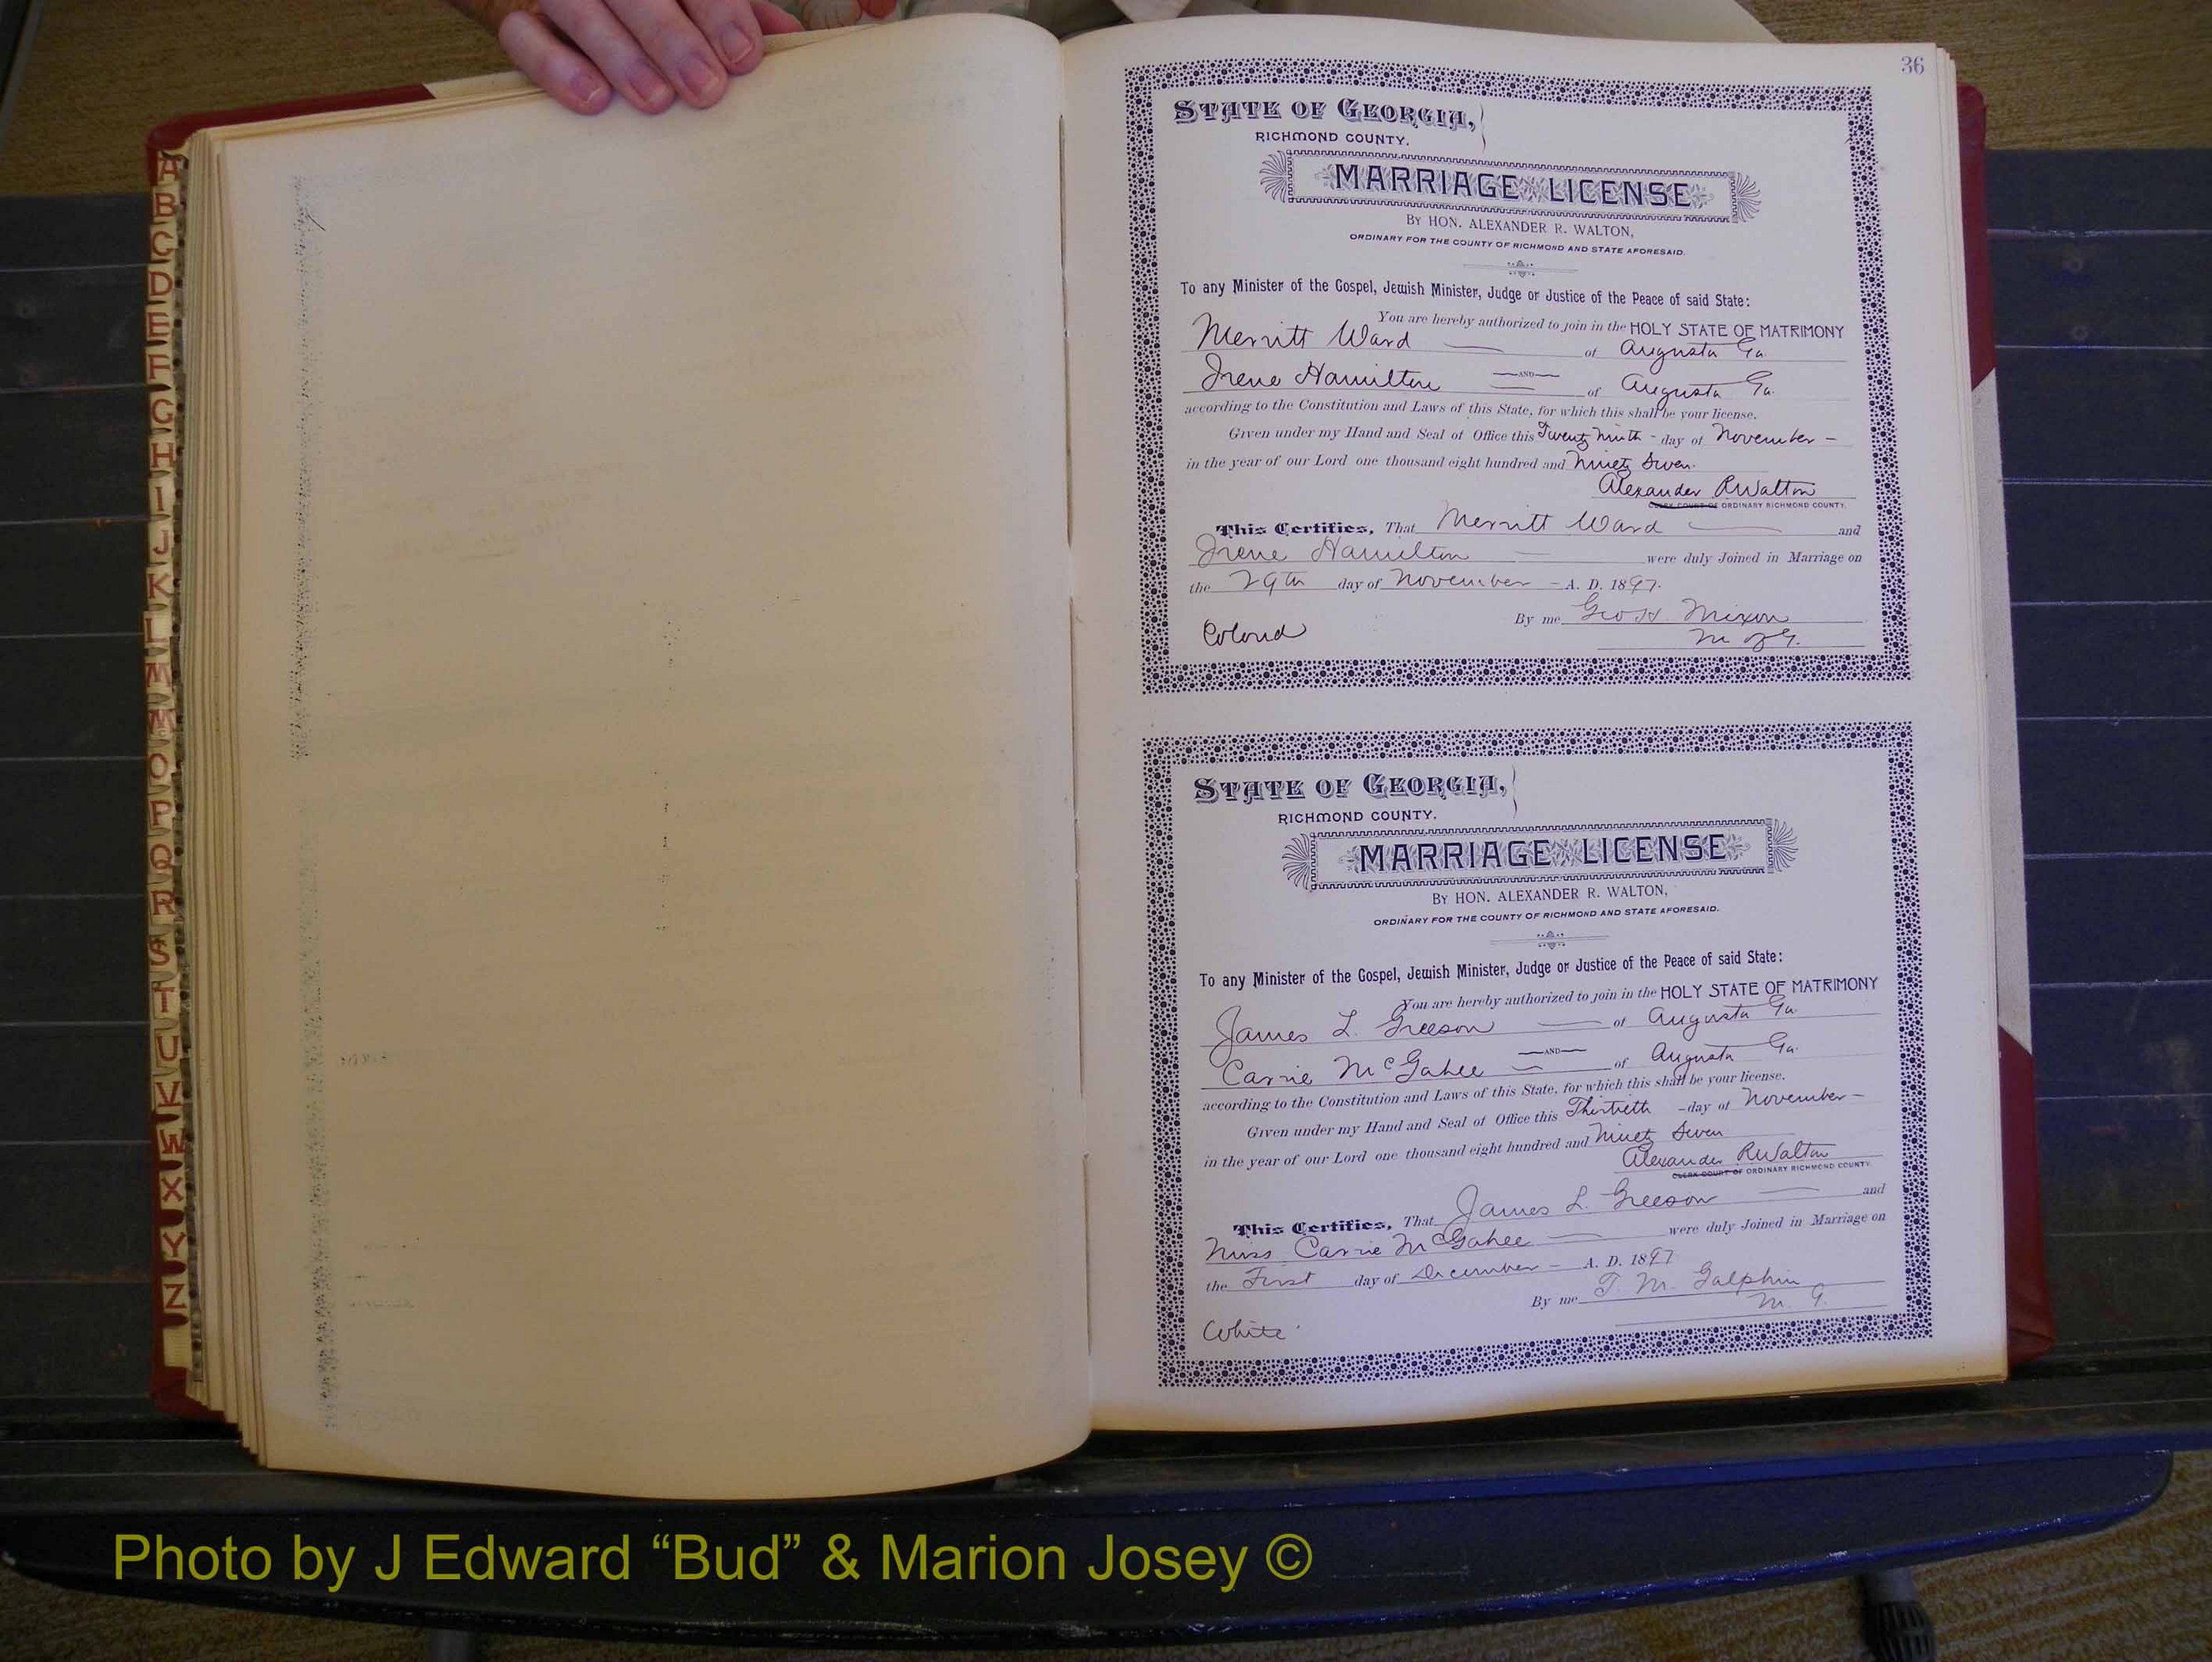 A
B
C
D
E
F
G
H
I
J
K
L
M
Mc
O
P
Q
R
S
T
U
V
W
X
Y
Z
36
STATE OF GEORGIA,
RICHMOND COUNTY.
MARRIAGE LICENSE
BY HON. ALEXANDER R. WALTON,
ORDINARY FOR THE COUNTY OF RICHMOND AND STATE AFORESAID.
To any Minister of the Gospel, Jewish Minister, Judge or Justice of the Peace of said State:
You are hereby authorized to join in the HOLY STATE OF MATRIMONY
Merritt Ward — of Augusta Ga.
—AND—
Irene Hamilton = of Augusta Ga.
according to the Constitution and Laws of this State, for which this shall be your license.
Given under my Hand and Seal of Office this Twenty Ninth - day of November -
in the year of our Lord one thousand eight hundred and Ninety Seven.
Alexander R Walton
CLERK COURT OF ORDINARY RICHMOND COUNTY.
This Certifies, That Merritt Ward — and
Irene Hamilton — were duly Joined in Marriage on
the 29th day of November - A. D. 1897.
By me Geo H. Mixon
M of G.
Colored
STATE OF GEORGIA,
RICHMOND COUNTY.
MARRIAGE LICENSE
BY HON. ALEXANDER R. WALTON,
ORDINARY FOR THE COUNTY OF RICHMOND AND STATE AFORESAID.
To any Minister of the Gospel, Jewish Minister, Judge or Justice of the Peace of said State:
You are hereby authorized to join in the HOLY STATE OF MATRIMONY
James L. Greeson — of Augusta Ga.
—AND—
Carrie McGahee — of Augusta Ga.
according to the Constitution and Laws of this State, for which this shall be your license.
Given under my Hand and Seal of Office this Thirtieth - day of November -
in the year of our Lord one thousand eight hundred and Ninety Seven
Alexander R Walton
CLERK COURT OF ORDINARY RICHMOND COUNTY.
This Certifies, That James L. Greeson — and
Miss Carrie McGahee — were duly Joined in Marriage on
the First day of December - A. D. 1897
By me T. M. Galphin
M. G.
White
Photo by J Edward “Bud” & Marion Josey ©